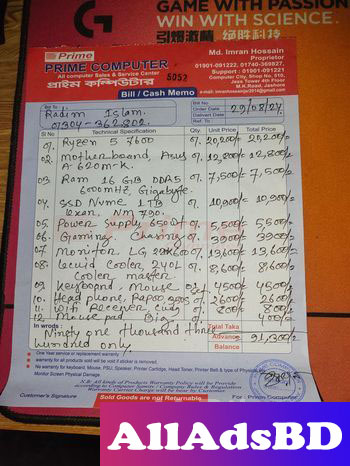 GAME WITH PASSION.
WIN WITH SCIENCE.
Prime
PRIME COMPUTER
All computer Sales & Service Center
প্রাইম কম্পিউটার
5052
Md. Imran Hossain
Proprietor
01901-091222, 01740-369827,
Support : 01901-091221
Computer City, Shop No. 510,
Jess Tower 4th Floor
M.K. Road, Jashore
Bill / Cash Memo
Radim Islam.
07304-362202.
Bill No
Order Date
Delivart Date
Ref. To
29/08/24
Sl No Technical Specification Qty. Unit Price Total Price
01. Ryzen 5 7600 01. 20,200/= 20,200/=
02. Motherboard, Asus 01. 12,800/= 12,800/=
A-620m-K.
03 Ram 16 GB DDR5 01. 7,500/= 7,500/=
6000MHZ Gigabyte.
04. SSD Nvme 1TB 01. 10,900/= 10,900/=
Lexar, NM 790.
05. Power Supply 650W 01. 5,500/=
06. Gaming Chasing 01. 3900/= 3900/=
07. Monitor LG 01. 13,600/= 13,600/=
08. Liquid Cooler 240L 01. 8,600/= 8,600/=
Cooler master.
09. Keyboard, Mouse Set 4500/= 4500/=
10. Head phone, Rapoo 01. 2600/= 2600/=
11. Wifi Receiver 01. 800/= 800/=
12. Mouse pad Big 400/=
In wrods :
Ninety one thousand three
hundred only
Total Taka
Advance 91,300/=
Balance
One Year service or replacement warranty
warranty for all products sold will be void if sticker is removed.
No warranty for keyboard, Mouse, PSU, Speaker, Printer Cartidge, Head Toner, Printer Belt & type of Physically
Monitor Screen Physical Damage.
N.B: All kinds of Products Warranty Policy will be Provide
according to Computer Samity / Company Sales & Regulation
Warranty Carrier Charge will be bear by Customer.
Customer's Signature
Sold Goods are not Returnable
For : Prime Computer
AllAdsBD